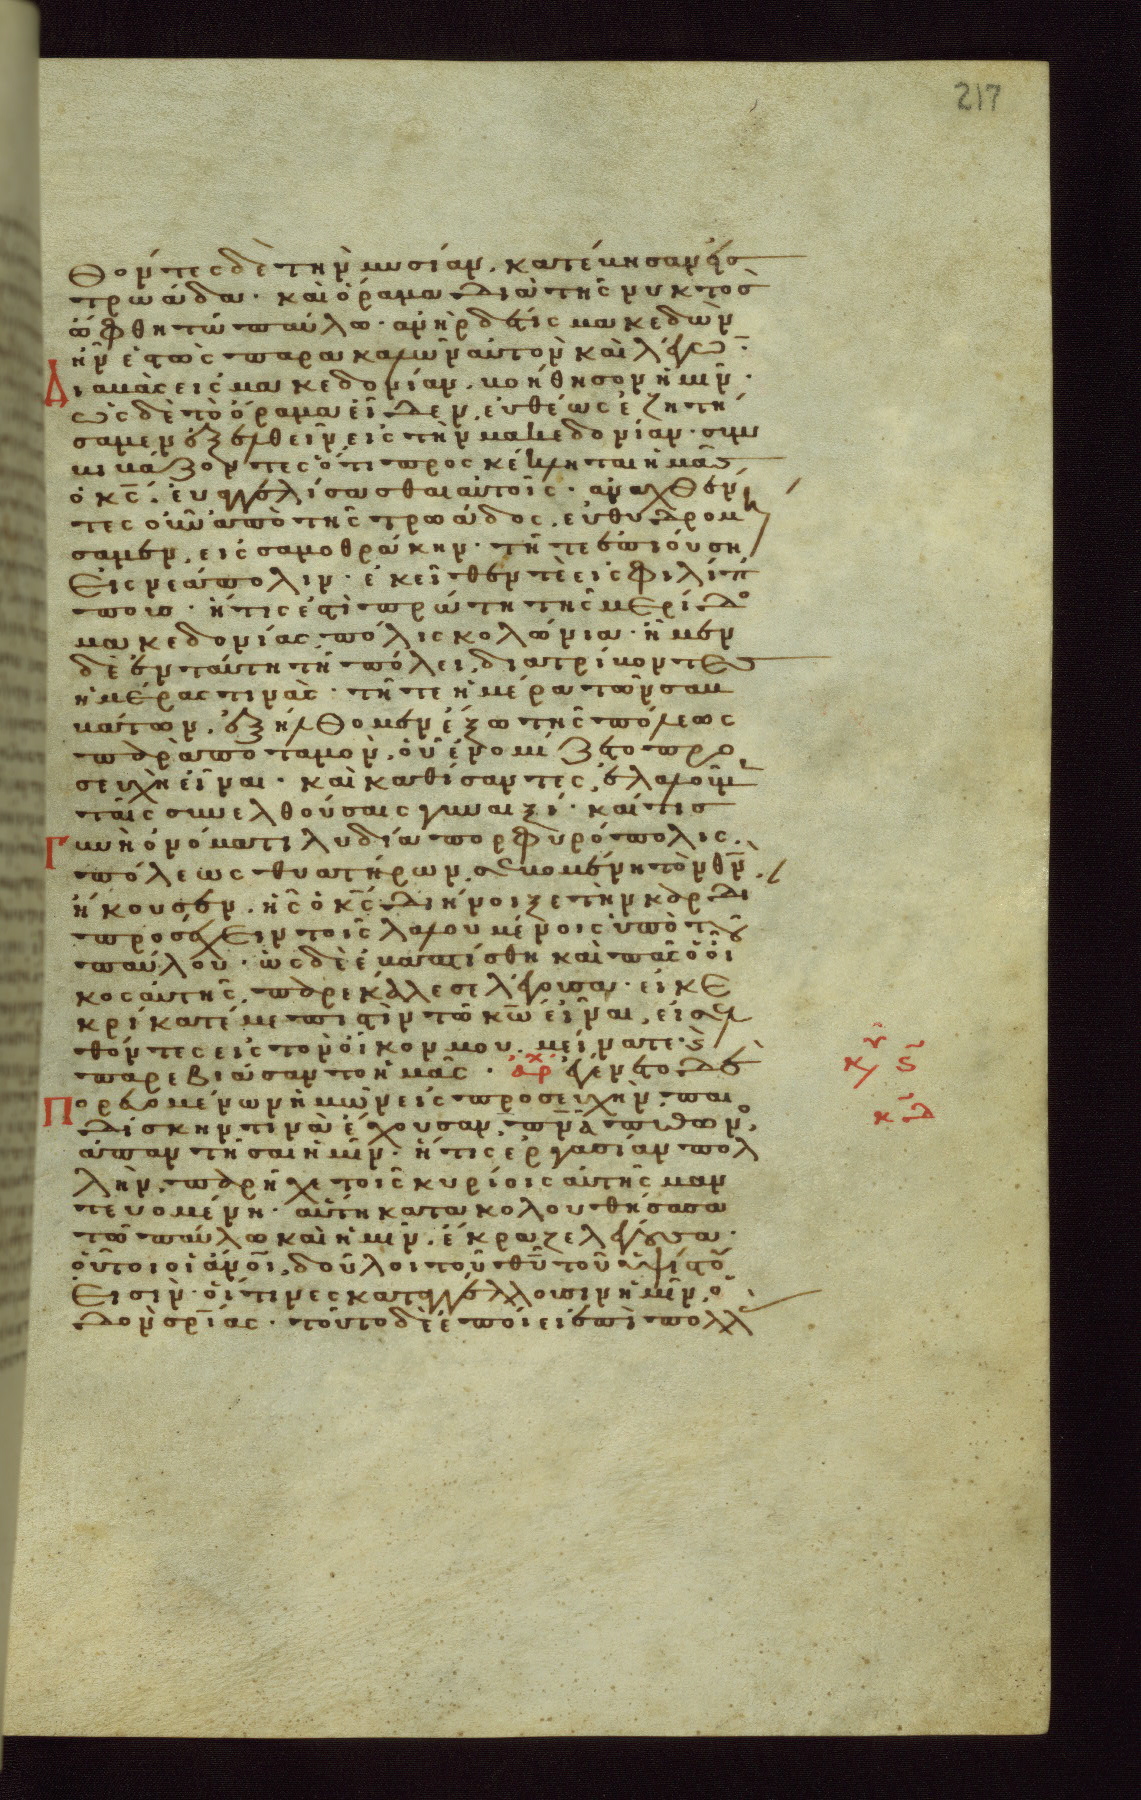 217
θόντες δὲ τὴν μυσίαν, κατέβησαν εἰς
τρωάδα· καὶ ὅραμα διὰ τῆς νυκτὸς
ὤφθη τῶ παύλω· ἀνὴρ δέ τις μακεδὼν
ἦν ἑστὼς παρακαλῶν αὐτὸν καὶ λέγων·
Διαβὰς εἰς μακεδονίαν, βοήθησον ἡμῖν·
ὡς δὲ τὸ ὅραμα εἶδεν, εὐθέως ἐζητή
σαμεν ἐξελθεῖν εἰς τὴν μακεδονίαν· συμ
βιβάζοντες ὅτι προσκέκληται ἡμᾶς
ὁ κς̅, εὐαγγελίσασθαι αὐτοῖς· ἀναχθέν
τες οὖν ἀπὸ τῆς τρωάδος, εὐθυδρομή
σαμεν, εἰς σαμοθράκην· τῆ τε ἐπιούση
εἰς νεάπολιν· ἐκεῖθεν τε εἰς φιλίπ
πους· ἥτις ἐστὶ πρώτη τῆς μερίδο
μακεδονίας πόλις κολώνια· ἦμεν
δὲ ἐν ταύτη τῆ πόλει, διατρίβοντες
ἡμέρας τινὰς· τῆ τε ἡμέρα τῶν σαβ
βάτων, ἐξήλθομεν ἔξω τῆς πόλεως
παρὰ ποταμὸν, οὗ ἐνομίζετο προ
σευχὴ εἶναι· καὶ καθίσαντες, ἐλαλοῦμ
ταῖς συνελθούσαις γυναιξί· καί τις
Γυνὴ ὀνόματι λυδία πορφυρόπολις
πόλεως θυατήρων, σεβομένη τὸν θν̅,
ἤκουσεν, ἧς ὁ κς̅ διήνοιξε τὴν καρδί
προσέχειν τοῖς λαλουμένοις ὑπὸ τοῦ
παύλου· ὡς δὲ ἐβαπτίσθη καὶ πᾶς ὁ οἶ
κος αὐτῆς, παρεκάλεσε λέγουσα· εἰ κε
κρίκατέ με πιστὴν τῶ κω̅ εἶναι, εἰσελ
θόντες εἰς τὸν οἶκον μου, μείνατε· καὶ
παρεβιάσατο ἡμᾶς· ἀρχ ἐγένετο δὲ
Πορευομένων ἡμῶν εἰς προσευχὴν, παι
δίσκην τινὰ ἔχουσαν, πνα̅ πύθων
ἀπαντῆσαι ἡμῖν· ἥτις ἐργασίαν πολ
λὴν, παρεῖχε τοῖς κυρίοις αὐτῆς μαν
τευομένη· αὕτη κατακολουθήσασα
τῶ παύλω καὶ ἡμῖν, ἔκραζε λέγουσα·
οὗτοι οἱ ἄνοι̅, δοῦλοι τοῦ θυ̅ τοῦ ὑψίστου
εἰσὶν· οἵτινες καταγγέλλουσιν ἡμῖν, ὁ
δὸν σρ̅ίας· τοῦτο δὲ ἐποίει ἐπὶ πολλ